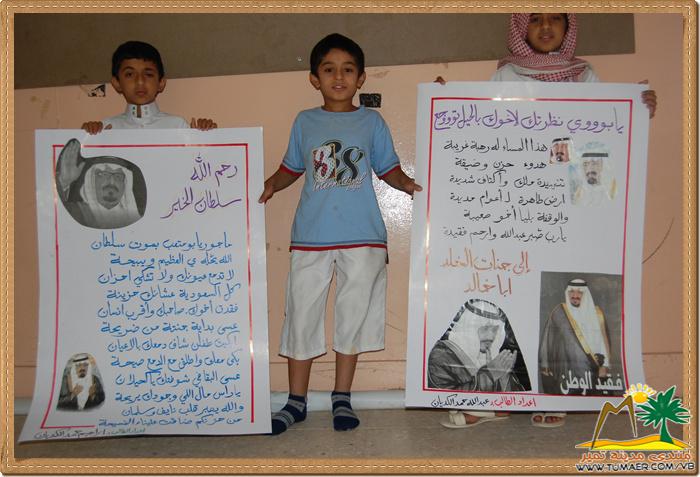 رحم الله
سلطان الخير
مأجور يا بو متعب بموت سلطان
الله يخله في العظيم ويبيحة
لا تدمع عيونك ولا تشكي احزان
كل السعودية عشانك حزينة
فقدت أخوك صاحبك وأقرب انسان
عسى بداية جنتة من ضريحة
طفل شاف دمعك بالاعيان
بكى معك واطلق مع الدمع صيحة
عسى البقا في شوفتك يا
يا راس مال اللي وجودك ربحة
والله يجبر قلب نايف وسلمان
من حزنكم ضاقت علينا الفسيحة
يا بوووي نظرتك لاخوك بالحيل توووجع
هذا المساء له رهبة غريبة
هدوء حزن وضيقة
تنهيدة ملك وأكتاف شديدة
ارض طاهرة لأعوام مديدة
والوقفة بليا أخو صعيبة
يارب صبر عبدالله وارحم فقيدة
إلى جنات الخلد
ابا خالد
فقيد الوطن
اعداد الطالب: عبدالله حمد الكديان
منتدى مدينة تمير
WWW.TUMAER.COM/VB